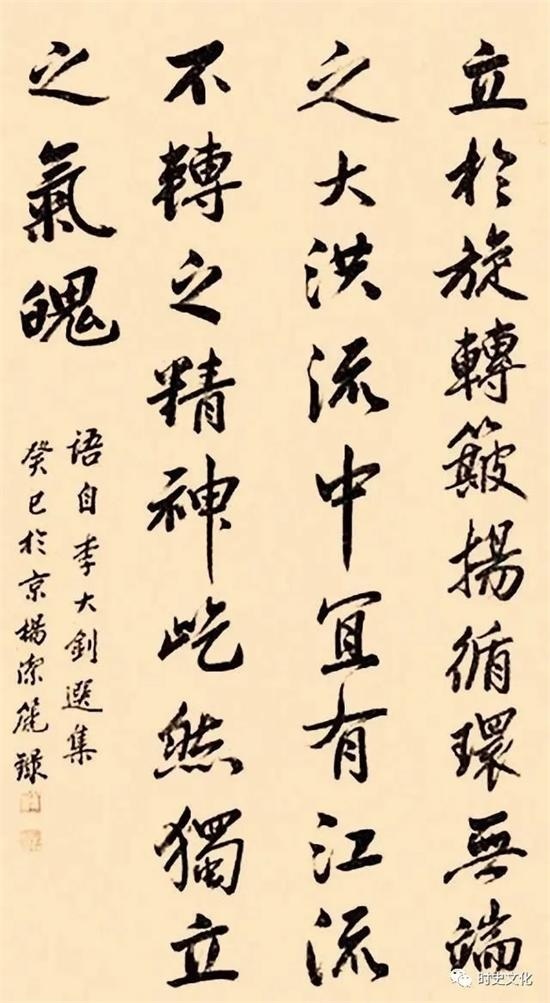 立於旋轉簸揚循環無端
之大洪流中宜有江流
不轉之精神屹然獨立
之氣魄
語自李大釗選集
癸巳於京楊潔篪錄
时史文化